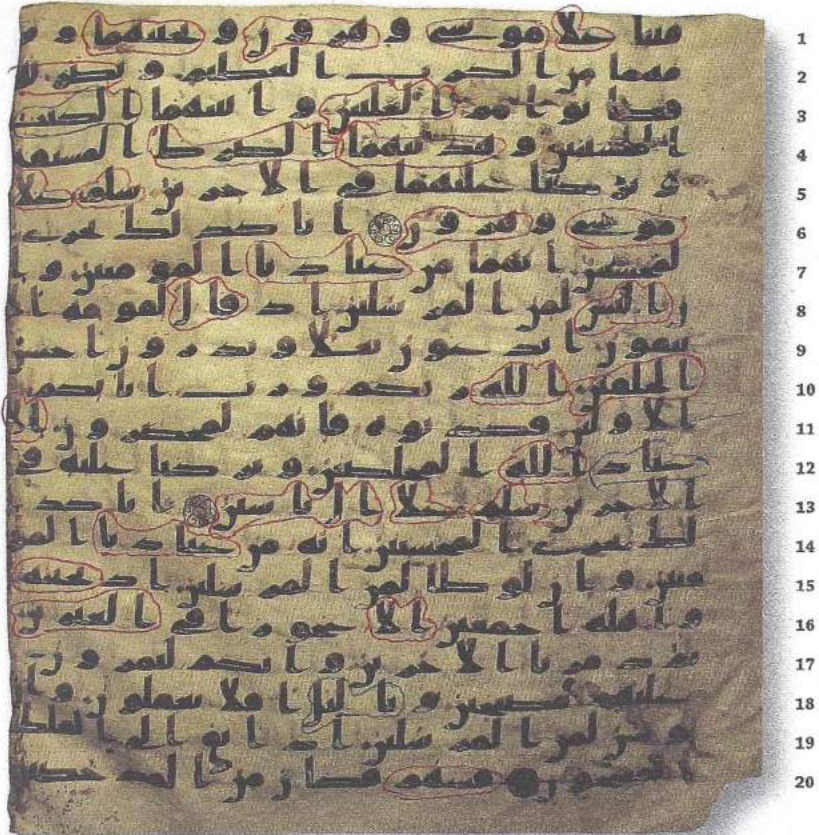 1 مننا علا موسى و هرون و نجينهما و قو
2 مهما من الكرب العظيم و نصرنهم
3 فكانوا هم الغلبين و اتينهما الكتب
4 المستبين و هدينهما الصرط المستقيم
5 و تركنا عليهما في الاخرين سلم علا
6 موسى و هرون انا كذلك نجزي ا
7 لمحسنين انهما من عبادنا المومنين و ا
8 ن الياس لمن المرسلين اذ قال لقومه الا
9 تتقون اتدعون بعلا و تذرون احسن
10 الخلقين الله ربكم و رب ابائكم
11 الاولين فكذبوه فانهم لمحضرون الا
12 عباد الله المخلصين و تركنا عليه في
13 الاخرين سلم علا ال ياسين انا كذ
14 لك نجزي المحسنين انه من عبادنا المو
15 منين و ان لوطا لمن المرسلين اذ نجينه
16 و اهله اجمعين الا عجوزا في الغبرين
17 ثم دمرنا الاخرين و انكم لتمرون
18 عليهم مصبحين و باليل افلا تعقلون و ا
19 ن يونس لمن المرسلين اذ ابق الى الفلك
20 المشحون فسهم فكان من المدحضين